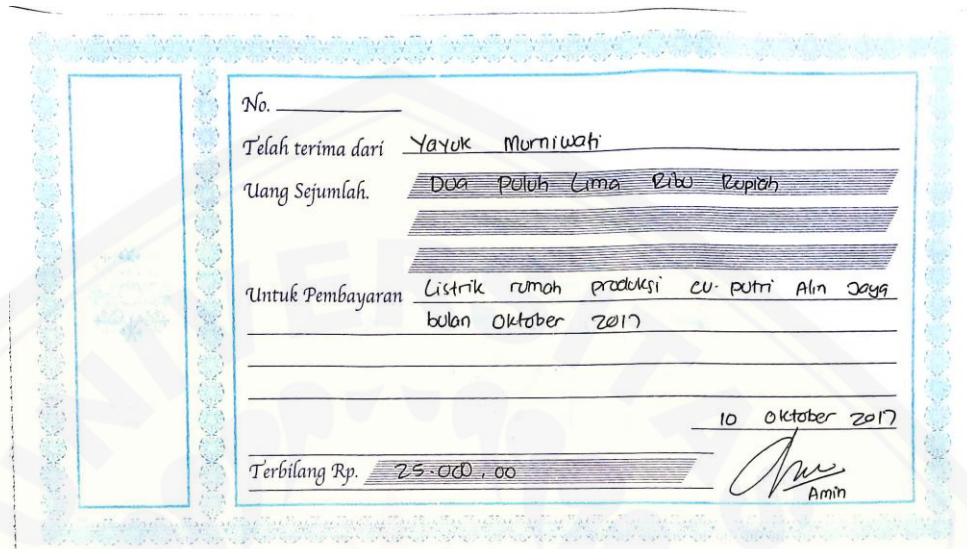 No.
Telah terima dari Yayuk Murniwati
Uang Sejumlah. Dua Puluh Lima Ribu Rupiah
Untuk Pembayaran Listrik rumah produksi cv. putri Alin Jaya
bulan Oktober 2017
10 Oktober 2017
Terbilang Rp. 25.000,00
Amin